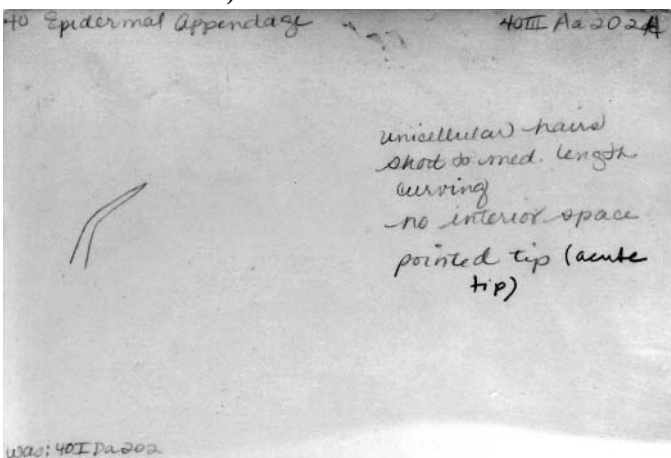 40 Epidermal Appendage
40III Aa202A
unicellular hairs
short to med. length
curving
no interior space
pointed tip (acute
tip)
was: 40I Da202